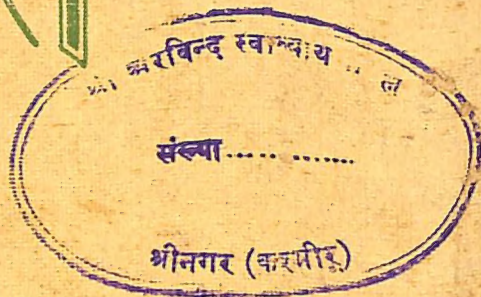 श्री अरविन्द स्वाध्याय
संख्या ..... .......
श्रीनगर (कश्मीर)